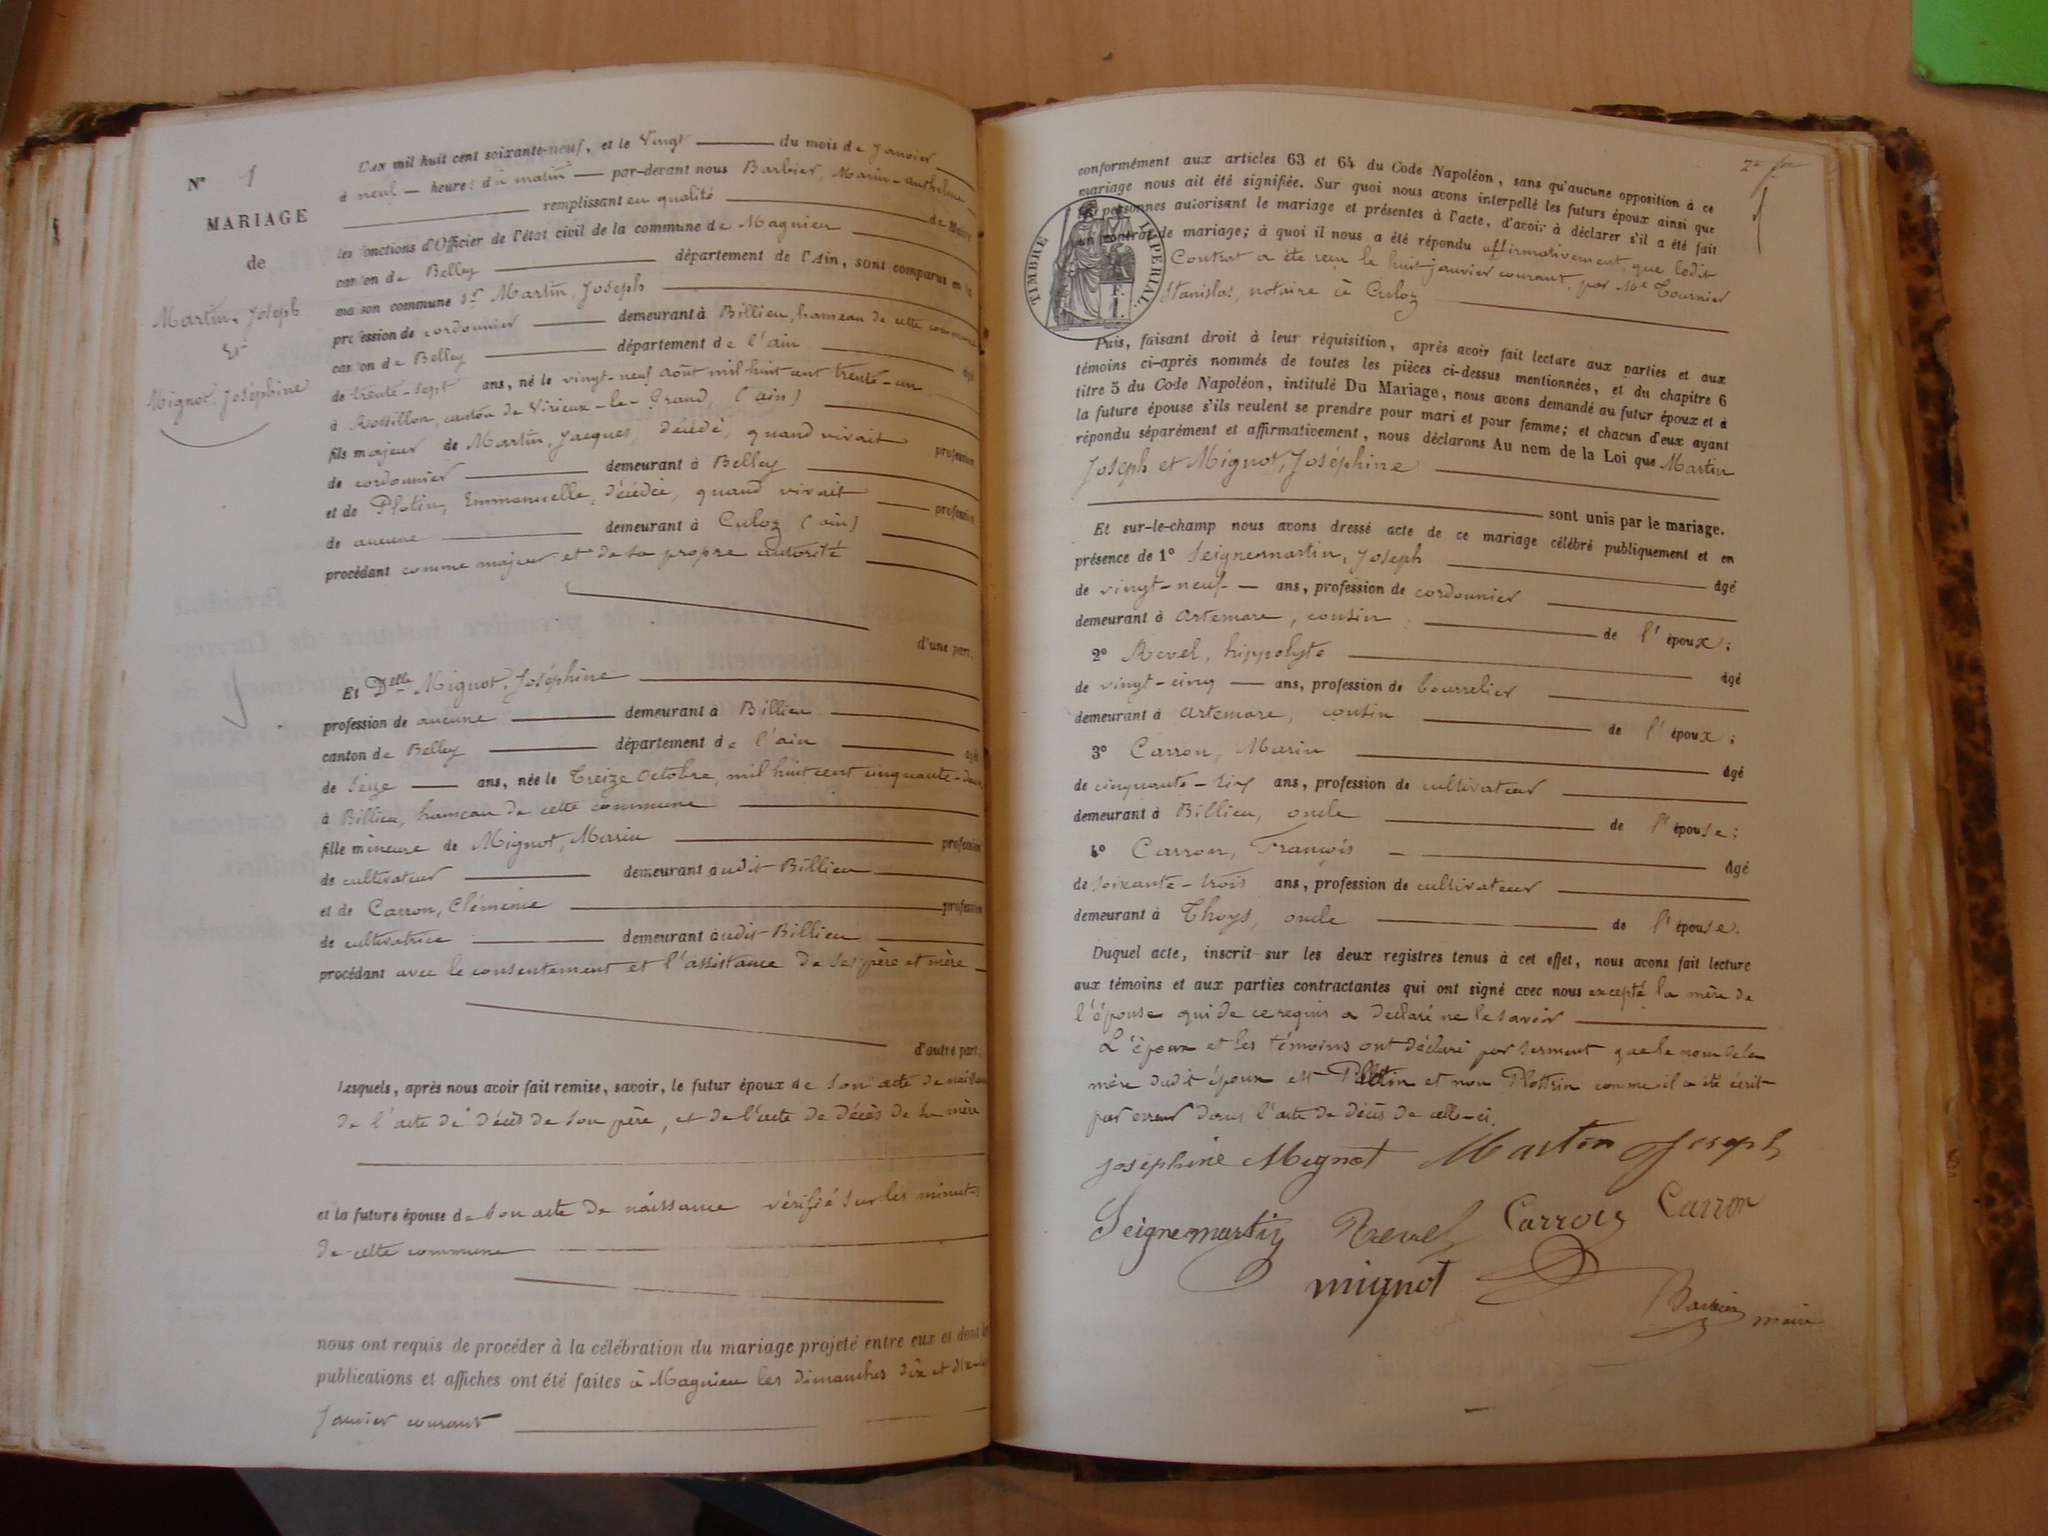 N° 1
MARIAGE
de
Martin, Joseph
Et
Mignot, Joséphine
L'an mil huit cent soixante-neuf, et le Vingt du mois de Janvier
à neuf heures du matin par-devant nous Barbier, Marin-Anthelme
remplissant en qualité de Maire
les fonctions d'Officier de l'état civil de la commune de Magnieu
canton de Belley département de l'Ain, sont comparus en la
maison commune Sr Martin, Joseph
profession de cordonnier demeurant à Billieu, hameau de cette commune
canton de Belley département de l'ain âgé
de trente-sept ans, né le vingt-neuf août mil huit cent trente-un
à Rossillon, canton de Virieux-le-Grand, (ain)
fils majeur de Martin, Jacques, décédé, quand vivait profession
de cordonnier demeurant à Belley
et de Plotin, Emmanuelle, décédée, quand vivait profession
de aucune demeurant à Culoz (ain)
procédant comme majeur et de sa propre autorité
d'une part,
Et Delle Mignot, Joséphine
profession de aucune demeurant à Billieu
canton de Belley département de l'ain âgée
de Seize ans, née le Treize Octobre, mil huit cent cinquante-deux
à Billieu, hameau de cette commune
fille mineure de Mignot, Marin profession
de cultivateur demeurant audit Billieu
et de Carron, Clémence profession
de cultivatrice demeurant audit Billieu
procédant avec le consentement et l'assistance de ses père et mère
d'autre part,
Lesquels, après nous avoir fait remise, savoir, le futur époux de son acte de naissance
de l'acte de décès de son père, et de l'acte de décès de sa mère
et la future épouse de son acte de naissance vérifié sur les minutes
de cette commune
nous ont requis de procéder à la célébration du mariage projeté entre eux et dont les
publications et affiches ont été faites à Magnieu les dimanches dix et dix-sept
Janvier courant
2e
conformément aux articles 63 et 64 du Code Napoléon, sans qu'aucune opposition à ce
mariage nous ait été signifiée. Sur quoi nous avons interpellé les futurs époux ainsi que
les personnes autorisant le mariage et présentes à l'acte, d'avoir à déclarer s'il a été fait
un contrat de mariage; à quoi il nous a été répondu affirmativement, que ledit
Contrat a été reçu le huit janvier courant, par Me Tournier
Stanislas, notaire à Culoz
TIMBRE IMPERIAL
Puis, faisant droit à leur réquisition, après avoir fait lecture aux parties et aux
témoins ci-après nommés de toutes les pièces ci-dessus mentionnées, et du chapitre 6
titre 5 du Code Napoléon, intitulé Du Mariage, nous avons demandé au futur époux et à
la future épouse s'ils veulent se prendre pour mari et pour femme; et chacun d'eux ayant
répondu séparément et affirmativement, nous déclarons Au nom de la Loi que Martin
Joseph et Mignot, Joséphine
sont unis par le mariage.
Et sur-le-champ nous avons dressé acte de ce mariage célébré publiquement et en
présence de 1° Seignemartin, Joseph âgé
de vingt-neuf ans, profession de cordonnier
demeurant à Artemare, cousin de l'époux;
2° Revel, hippolyte âgé
de vingt-cinq ans, profession de bourrelier
demeurant à Artemare, cousin de l'époux;
3° Carron, Marin âgé
de cinquante-six ans, profession de cultivateur
demeurant à Billieu, oncle de l'épouse;
4° Carron, François âgé
de soixante-trois ans, profession de cultivateur
demeurant à Thoys, oncle de l'épouse.
Duquel acte, inscrit sur les deux registres tenus à cet effet, nous avons fait lecture
aux témoins et aux parties contractantes qui ont signé avec nous excepté la mère de
l'épouse qui de ce requis a déclaré ne le savoir
L'époux et les témoins ont déclaré par serment que le nom de la
mère dudit époux est Plotin et non Plottrin comme il a été écrit
par erreur dans l'acte de décès de celle-ci.
Joséphine Mignot Martin Joseph
Seignemartin Revel Carron Carron
mignot
Barbier maire